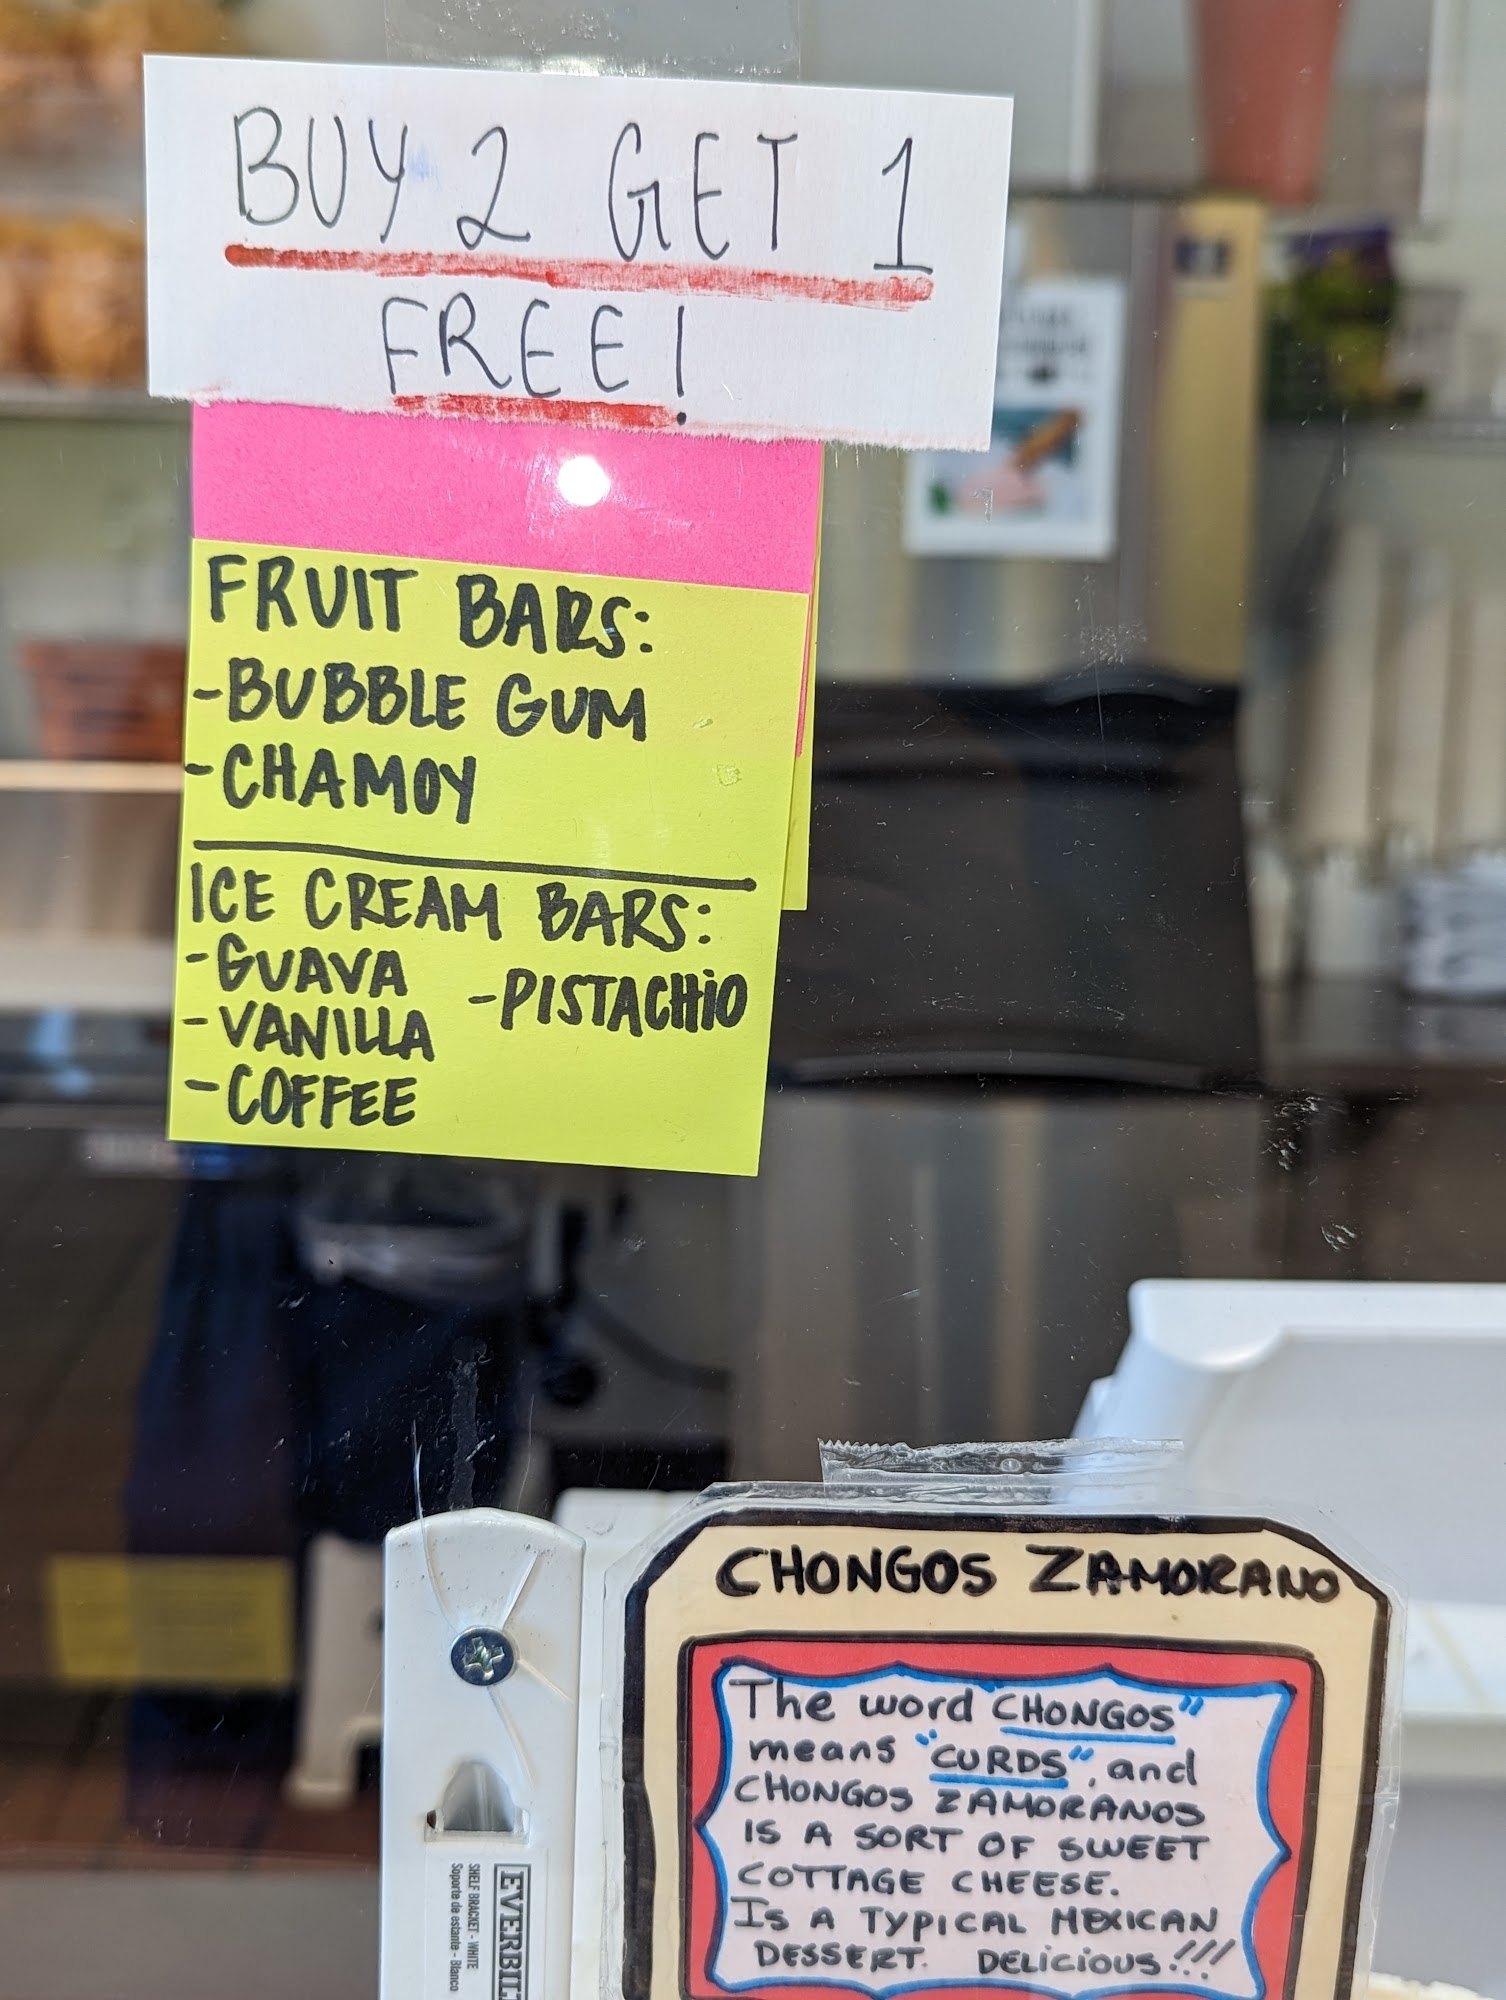 BUY 2 GET 1
FREE!
FRUIT BARS:
-BUBBLE GUM
-CHAMOY
ICE CREAM BARS:
-GUAVA
-PISTACHiO
-VANILLA
-COFFEE
CHONGOS ZAMORANO
The word "CHONGOS"
means "CURDS", and
CHONGOS ZAMORANOS
IS A SORT OF SWEET
COTTAGE CHEESE.
Is A TYPICAL MEXICAN
DESSERT. DELiCiOUS!!!
SHELF BRACKET - WHITE
Soporte de estante - Blanco